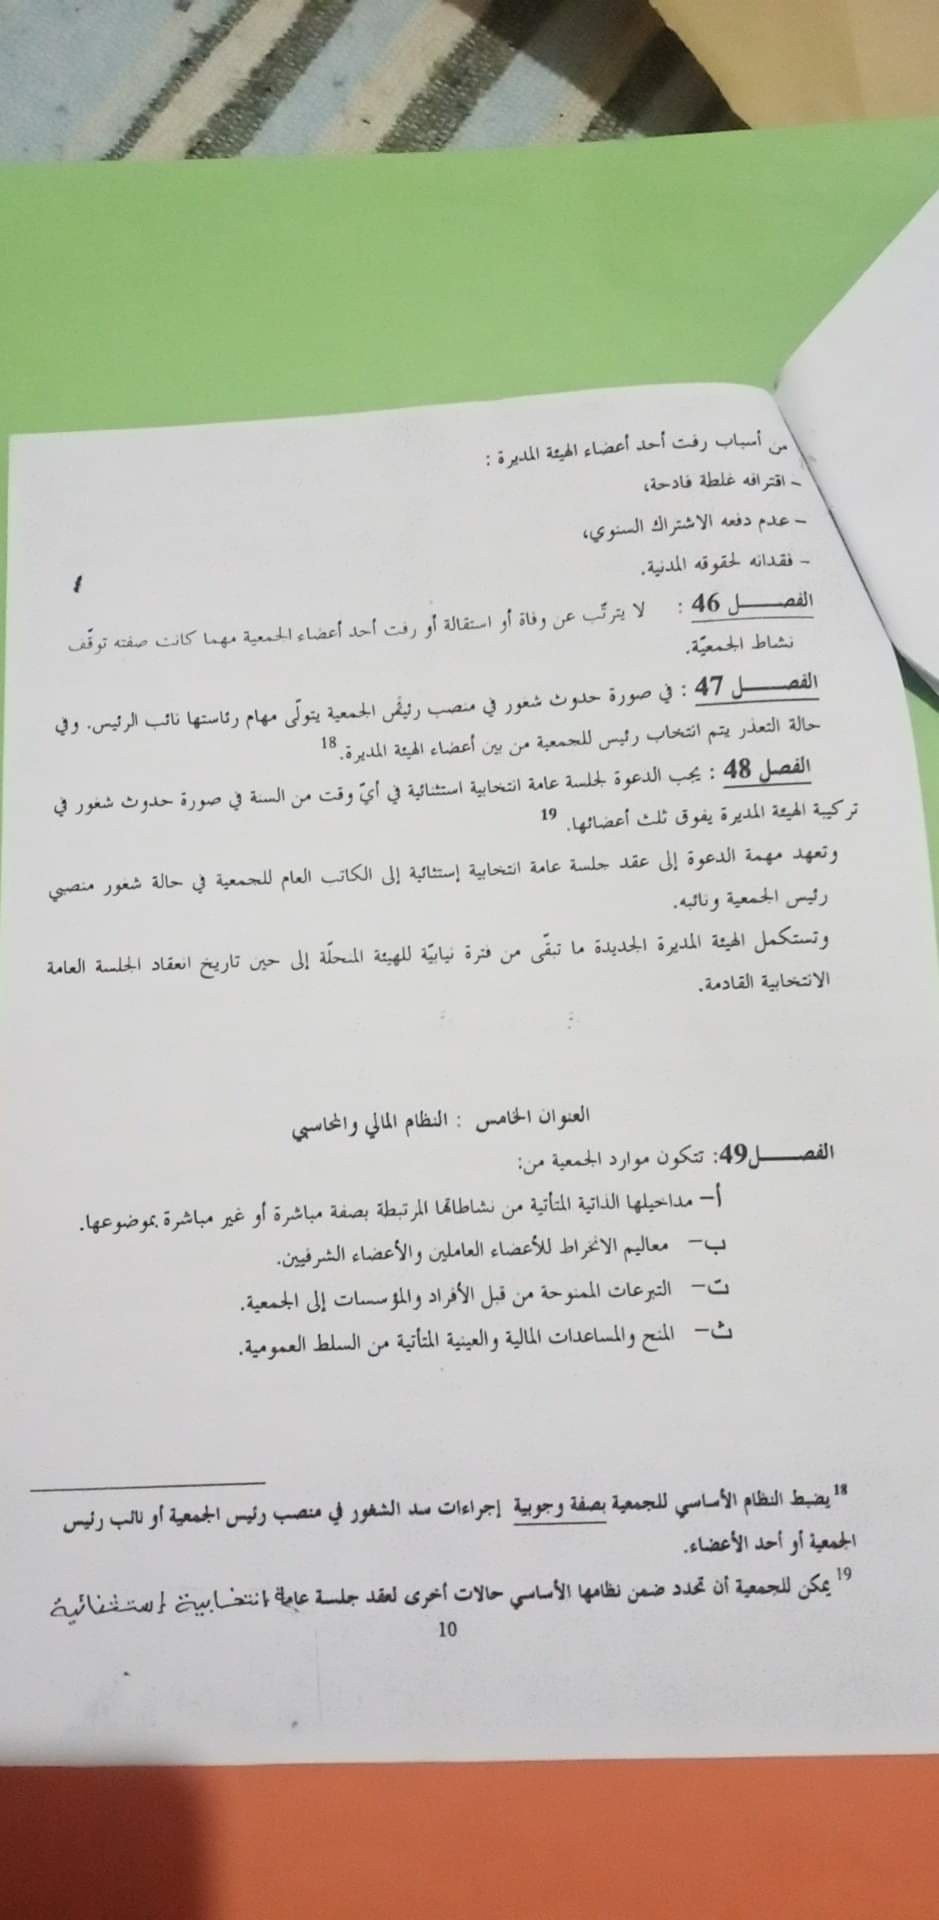 من أسباب رفت أحد أعضاء الهيئة المديرة :
- اقترافه غلطة فادحة،
- عدم دفعه الاشتراك السنوي،
- فقدانه لحقوقه المدنية.
الفصـــــل 46 : لا يترتّب عن وفاة أو استقالة أو رفت أحد أعضاء الجمعية مهما كانت صفته توقّف
نشاط الجمعيّة.
الفصـــــل 47 : في صورة حدوث شغور في منصب رئيس الجمعية يتولّى مهام رئاستها نائب الرئيس. وفي
حالة التعذر يتم انتخاب رئيس للجمعية من بين أعضاء الهيئة المديرة.18
الفصل 48 : يجب الدعوة لجلسة عامة انتخابية استثنائية في أيّ وقت من السنة في صورة حدوث شغور في
تركيبة الهيئة المديرة يفوق ثلث أعضائها. 19
وتعهد مهمة الدعوة إلى عقد جلسة عامة انتخابية إستثنائية إلى الكاتب العام للجمعية في حالة شغور منصبي
رئيس الجمعية ونائبه.
وتستكمل الهيئة المديرة الجديدة ما تبقّى من فترة نيابيّة للهيئة المنحلّة إلى حين تاريخ انعقاد الجلسة العامة
الانتخابية القادمة.
العنوان الخامس : النظام المالي والمحاسبي
الفصـــــل49: تتكون موارد الجمعية من:
أ- مداخيلها الذاتية المتأتية من نشاطاتها المرتبطة بصفة مباشرة أو غير مباشرة بموضوعها.
ب- معاليم الانخراط للأعضاء العاملين والأعضاء الشرفيين.
ت- التبرعات الممنوحة من قبل الأفراد والمؤسسات إلى الجمعية.
ث- المنح والمساعدات المالية والعينية المتأتية من السلط العمومية.
18 يضبط النظام الأساسي للجمعية بصفة وجوبية إجراءات سد الشغور في منصب رئيس الجمعية أو نائب رئيس
الجمعية أو أحد الأعضاء.
19 يمكن للجمعية أن تحدد ضمن نظامها الأساسي حالات أخرى لعقد جلسة عامة انتخابية إستثنائية
10